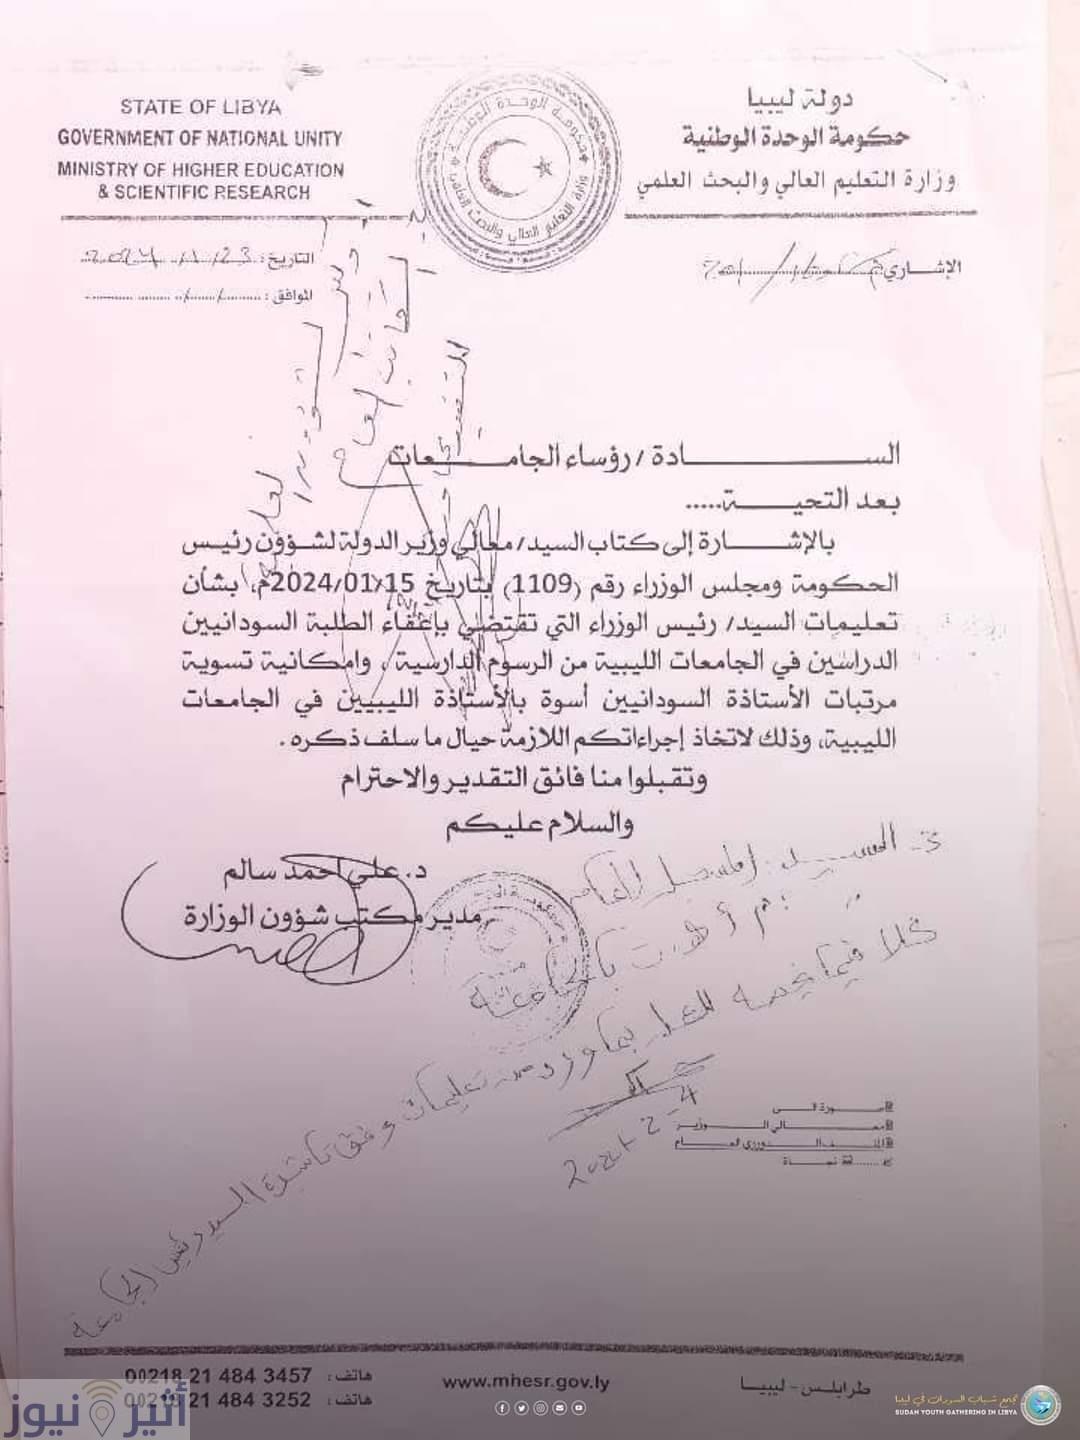 STATE OF LIBYA
GOVERNMENT OF NATIONAL UNITY
MINISTRY OF HIGHER EDUCATION
& SCIENTIFIC RESEARCH
دولة ليبيا
حكومة الوحدة الوطنية
وزارة التعليم العالي والبحث العلمي
حكومة الوحدة الوطنية
وزارة التعليم العالي والبحث العلمي
الإشاري:
التاريخ: 23/1/2024
الموافق: ....../....../......
الســـادة / رؤساء الجامـــعات
بعد التحيـــة.....
بالإشـــارة إلى كتاب السيد/ معالي وزير الدولة لشؤون رئيس
الحكومة ومجلس الوزراء رقم (1109) بتاريخ 2024/01/15م، بشأن
تعليمات السيد/ رئيس الوزراء التي تقتضي بإعفاء الطلبة السودانيين
الدراسين في الجامعات الليبية من الرسوم الدارسية ، وامكانية تسوية
مرتبات الأستاذة السودانيين أسوة بالأستاذة الليبيين في الجامعات
الليبية، وذلك لاتخاذ إجراءاتكم اللازمة حيال ما سلف ذكره .
وتقبلوا منا فائق التقدير والاحترام
والسلام عليكم
د. علي احمد سالم
مدير مكتب شؤون الوزارة
السيد
كلا فيما يخصه للعمل بما ورد من تعليمات وفق تأشيرة السيد رئيس الجامعة
2024-2-4
صورة إلى
معالي الوزير
الملف الدوري العام
هاتف: 00218 21 484 3457
هاتف: 00218 21 484 3252
www.mhesr.gov.ly
طرابلس - ليبيا
أثير نيوز
تجمع شباب السودان في ليبيا
SUDAN YOUTH GATHERING IN LIBYA